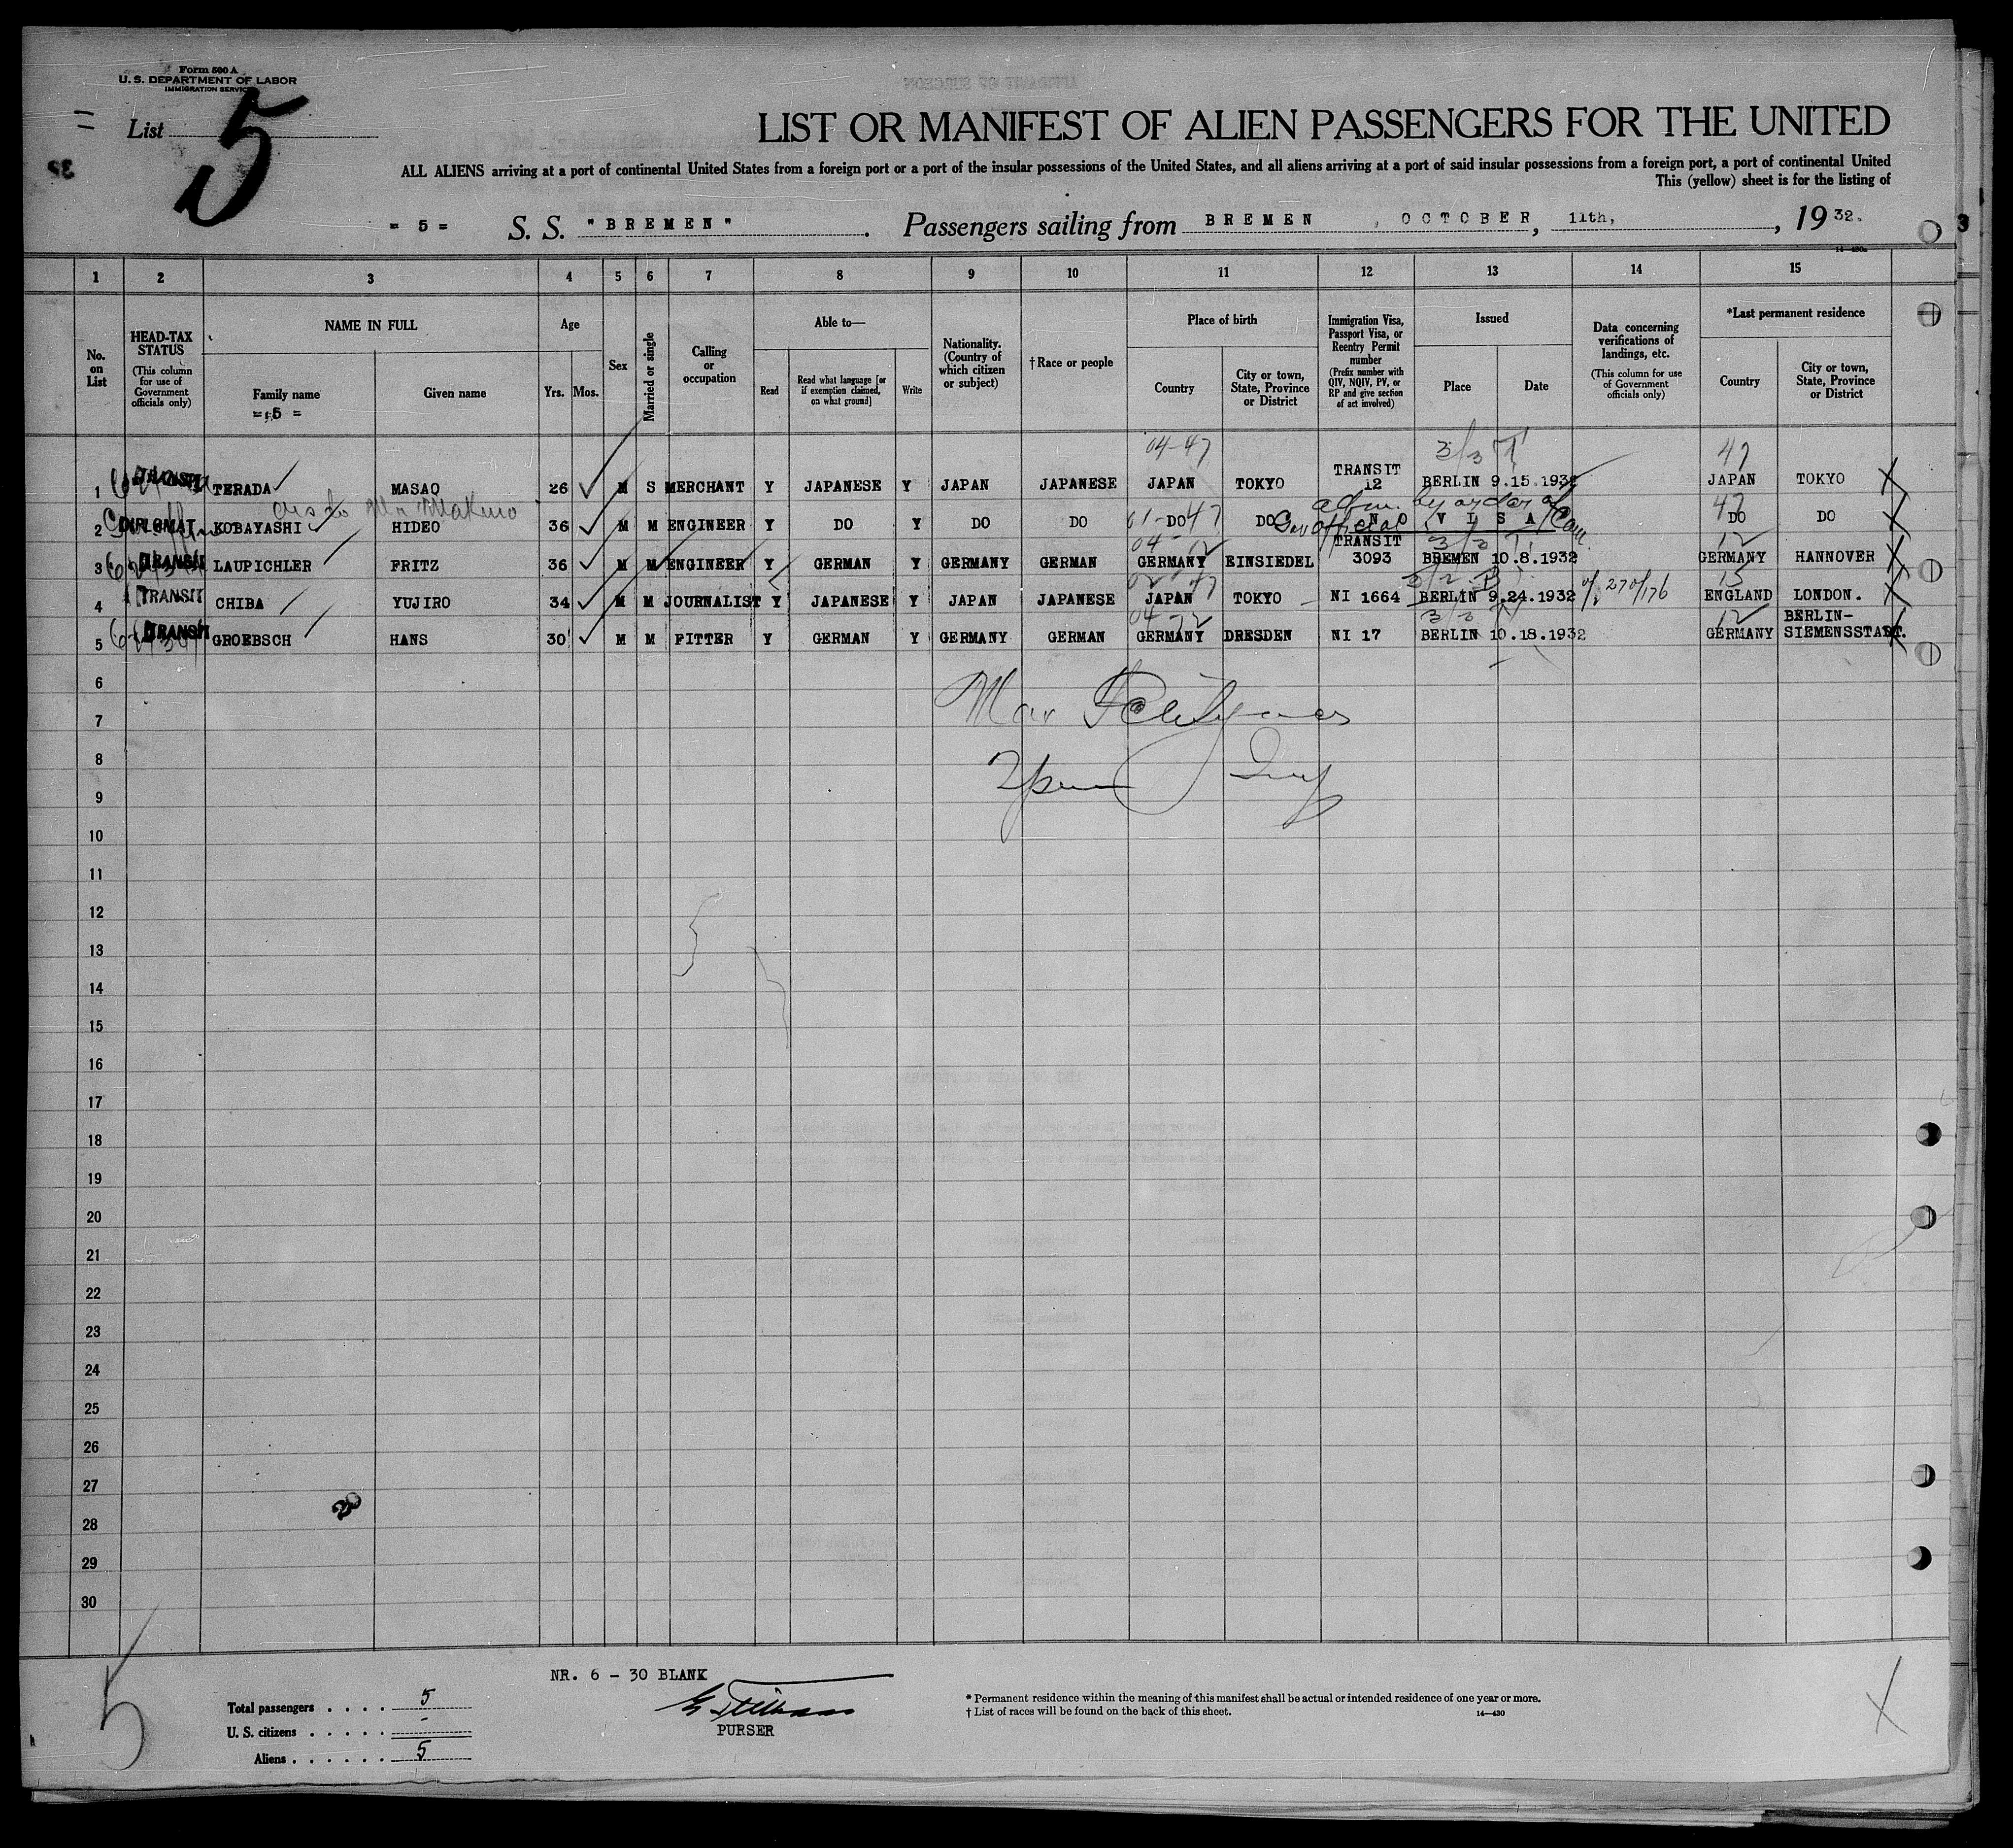 Form 500 A
U. S. DEPARTMENT OF LABOR
IMMIGRATION SERVICE
List 5
LIST OR MANIFEST OF ALIEN PASSENGERS FOR THE UNITED
ALL ALIENS arriving at a port of continental United States from a foreign port or a port of the insular possessions of the United States, and all aliens arriving at a port of said insular possessions from a foreign port, a port of continental United
This (yellow) sheet is for the listing of
= 5 = S. S. "BREMEN". Passengers sailing from BREMEN, OCTOBER, 11th, , 19 32.
14—430a
1 2 3 4 5 6 7 8 9 10 11 12 13 14 15
No. on List
HEAD-TAX STATUS (This column for use of Government officials only)
NAME IN FULL
Family name
= 5 =
Given name
Age
Yrs. Mos.
Sex
Married or single
Calling or occupation
Able to—
Read
Read what language [or if exemption claimed, on what ground]
Write
Nationality. (Country of which citizen or subject)
†Race or people
Place of birth
Country
City or town, State, Province or District
Immigration Visa, Passport Visa, or Reentry Permit number (Prefix number with QIV, NQIV, PV, or RP and give section of act involved)
Issued
Place
Date
Data concerning verifications of landings, etc. (This column for use of Government officials only)
*Last permanent residence
Country
City or town, State, Province or District
04-47 3/3 47
1 TRANSIT TERADA MASAO 26 M S MERCHANT Y JAPANESE Y JAPAN JAPANESE JAPAN TOKYO TRANSIT 12 BERLIN 9.15.1932 JAPAN TOKYO
adm. by order of
47
2 DIPLOMAT KOBAYASHI HIDEO 36 M M ENGINEER Y DO Y DO DO 01-47 DO DO official NO VISA DO DO
04-12 12
3 TRANSIT LAUPICHLER FRITZ 36 M M ENGINEER Y GERMAN Y GERMANY GERMAN GERMANY EINSIEDEL TRANSIT 3093 BREMEN 10.8.1932 GERMANY HANNOVER
4 TRANSIT CHIBA YUJIRO 34 M M JOURNALIST Y JAPANESE Y JAPAN JAPANESE JAPAN TOKYO NI 1664 BERLIN 9.24.1932 ENGLAND LONDON.
04-12 12
5 TRANSIT GROEBSCH HANS 30 M M FITTER Y GERMAN Y GERMANY GERMAN GERMANY DRESDEN NI 17 BERLIN 10.18.1932 GERMANY BERLIN-SIEMENSSTADT.
6
7
8
9
10
11
12
13
14
15
16
17
18
19
20
21
22
23
24
25
26
27
28
29
30
NR. 6 - 30 BLANK
5
Total passengers . . . . 5
U. S. citizens . . . . . -
Aliens . . . . . . 5
PURSER
* Permanent residence within the meaning of this manifest shall be actual or intended residence of one year or more.
† List of races will be found on the back of this sheet.
14—430